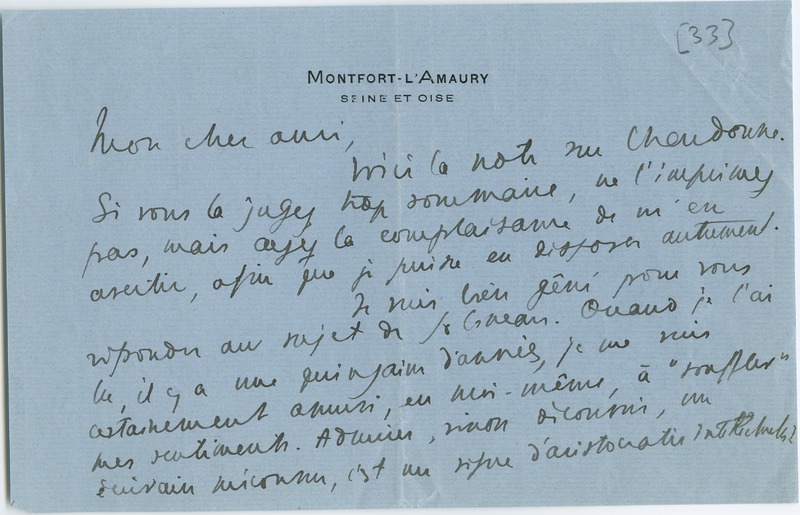 [33]
MONTFORT-L'AMAURY
SEINE ET OISE
Mon cher ami,
Voici la note sur Chardonne.
Si vous la jugez trop sommaire, ne l'imprimez
pas, mais ayez la complaisance de m'en
avertir, afin que je puisse en disposer autrement.
Je suis bien gêné pour vous
répondre au sujet de
. Quand je l'ai
lu, il y a une quinzaine d'années, je me suis
certainement amusé, en moi-même, à "souffler"
mes sentiments. Admirer, sinon découvrir, un
écrivain méconnu, c'est un signe d'aristocratie intellectuelle